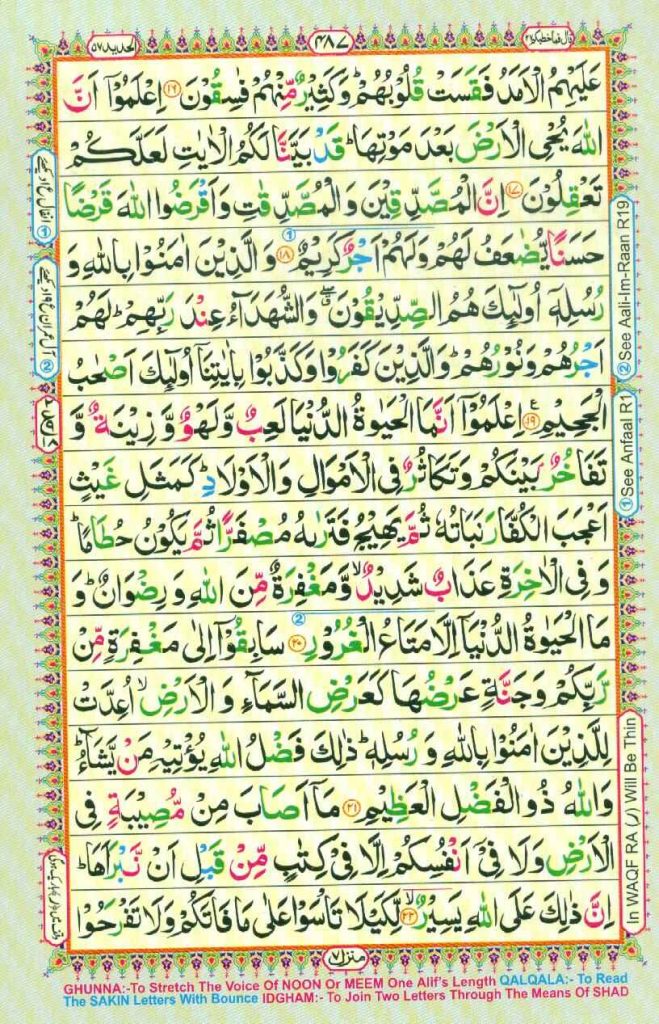 قال فما خطبكم ٢٧
٤٨٧
الحدید ٥٧
عَلَیْهِمُ الْاَمَدُ فَقَسَتْ قُلُوْبُهُمْ ؕ وَكَثِیْرٌ مِّنْهُمْ فٰسِقُوْنَ ۝١٦ اِعْلَمُوْۤا اَنَّ
اللّٰهَ یُحْیِ الْاَرْضَ بَعْدَ مَوْتِهَا ؕ قَدْ بَیَّنَّا لَكُمُ الْاٰیٰتِ لَعَلَّكُمْ
تَعْقِلُوْنَ ۝١٧ اِنَّ الْمُصَّدِّقِیْنَ وَ الْمُصَّدِّقٰتِ وَ اَقْرَضُوا اللّٰهَ قَرْضًا
حَسَنًا یُّضٰعَفُ لَهُمْ وَلَهُمْ اَجْرٌ كَرِیْمٌ ۝١٨ وَ الَّذِیْنَ اٰمَنُوْا بِاللّٰهِ وَ
رُسُلِهٖۤ اُولٰٓىِٕكَ هُمُ الصِّدِّیْقُوْنَ ۖۗ وَالشُّهَدَآءُ عِنْدَ رَبِّهِمْ ؕ لَهُمْ
اَجْرُهُمْ وَ نُوْرُهُمْ ؕ وَالَّذِیْنَ كَفَرُوْا وَ كَذَّبُوْا بِاٰیٰتِنَاۤ اُولٰٓىِٕكَ اَصْحٰبُ
الْجَحِیْمِ ۝١٩ اِعْلَمُوْۤا اَنَّمَا الْحَیٰوةُ الدُّنْیَا لَعِبٌ وَّ لَهْوٌ وَّ زِیْنَةٌ وَّ
تَفَاخُرٌۢ بَیْنَكُمْ وَ تَكَاثُرٌ فِی الْاَمْوَالِ وَ الْاَوْلَادِ ؕ كَمَثَلِ غَیْثٍ
اَعْجَبَ الْكُفَّارَ نَبَاتُهٗ ثُمَّ یَهِیْجُ فَتَرٰىهُ مُصْفَرًّا ثُمَّ یَكُوْنُ حُطَامًا ؕ
وَ فِی الْاٰخِرَةِ عَذَابٌ شَدِیْدٌ ۙ وَّ مَغْفِرَةٌ مِّنَ اللّٰهِ وَ رِضْوَانٌ ؕ وَ
مَا الْحَیٰوةُ الدُّنْیَاۤ اِلَّا مَتَاعُ الْغُرُوْرِ ۝٢٠ سَابِقُوْۤا اِلٰی مَغْفِرَةٍ مِّنْ
رَّبِّكُمْ وَ جَنَّةٍ عَرْضُهَا كَعَرْضِ السَّمَآءِ وَ الْاَرْضِ ۙ اُعِدَّتْ
لِلَّذِیْنَ اٰمَنُوْا بِاللّٰهِ وَ رُسُلِهٖ ؕ ذٰلِكَ فَضْلُ اللّٰهِ یُؤْتِیْهِ مَنْ یَّشَآءُ ؕ
وَ اللّٰهُ ذُو الْفَضْلِ الْعَظِیْمِ ۝٢١ مَاۤ اَصَابَ مِنْ مُّصِیْبَةٍ فِی
الْاَرْضِ وَ لَا فِیْۤ اَنْفُسِكُمْ اِلَّا فِیْ كِتٰبٍ مِّنْ قَبْلِ اَنْ نَّبْرَاَهَا ؕ
اِنَّ ذٰلِكَ عَلَی اللّٰهِ یَسِیْرٌ ۝٢٢ۙ لِّكَیْلَا تَاْسَوْا عَلٰی مَا فَاتَكُمْ وَ لَا تَفْرَحُوْا
② See Aali-Im-Raan R19
① See Anfaal R1
In WAQF RA (ر) Will Be Thin
منزل ٧
GHUNNA:-To Stretch The Voice Of NOON Or MEEM One Alif's Length QALQALA:- To Read
The SAKIN Letters With Bounce IDGHAM:- To Join Two Letters Through The Means Of SHAD